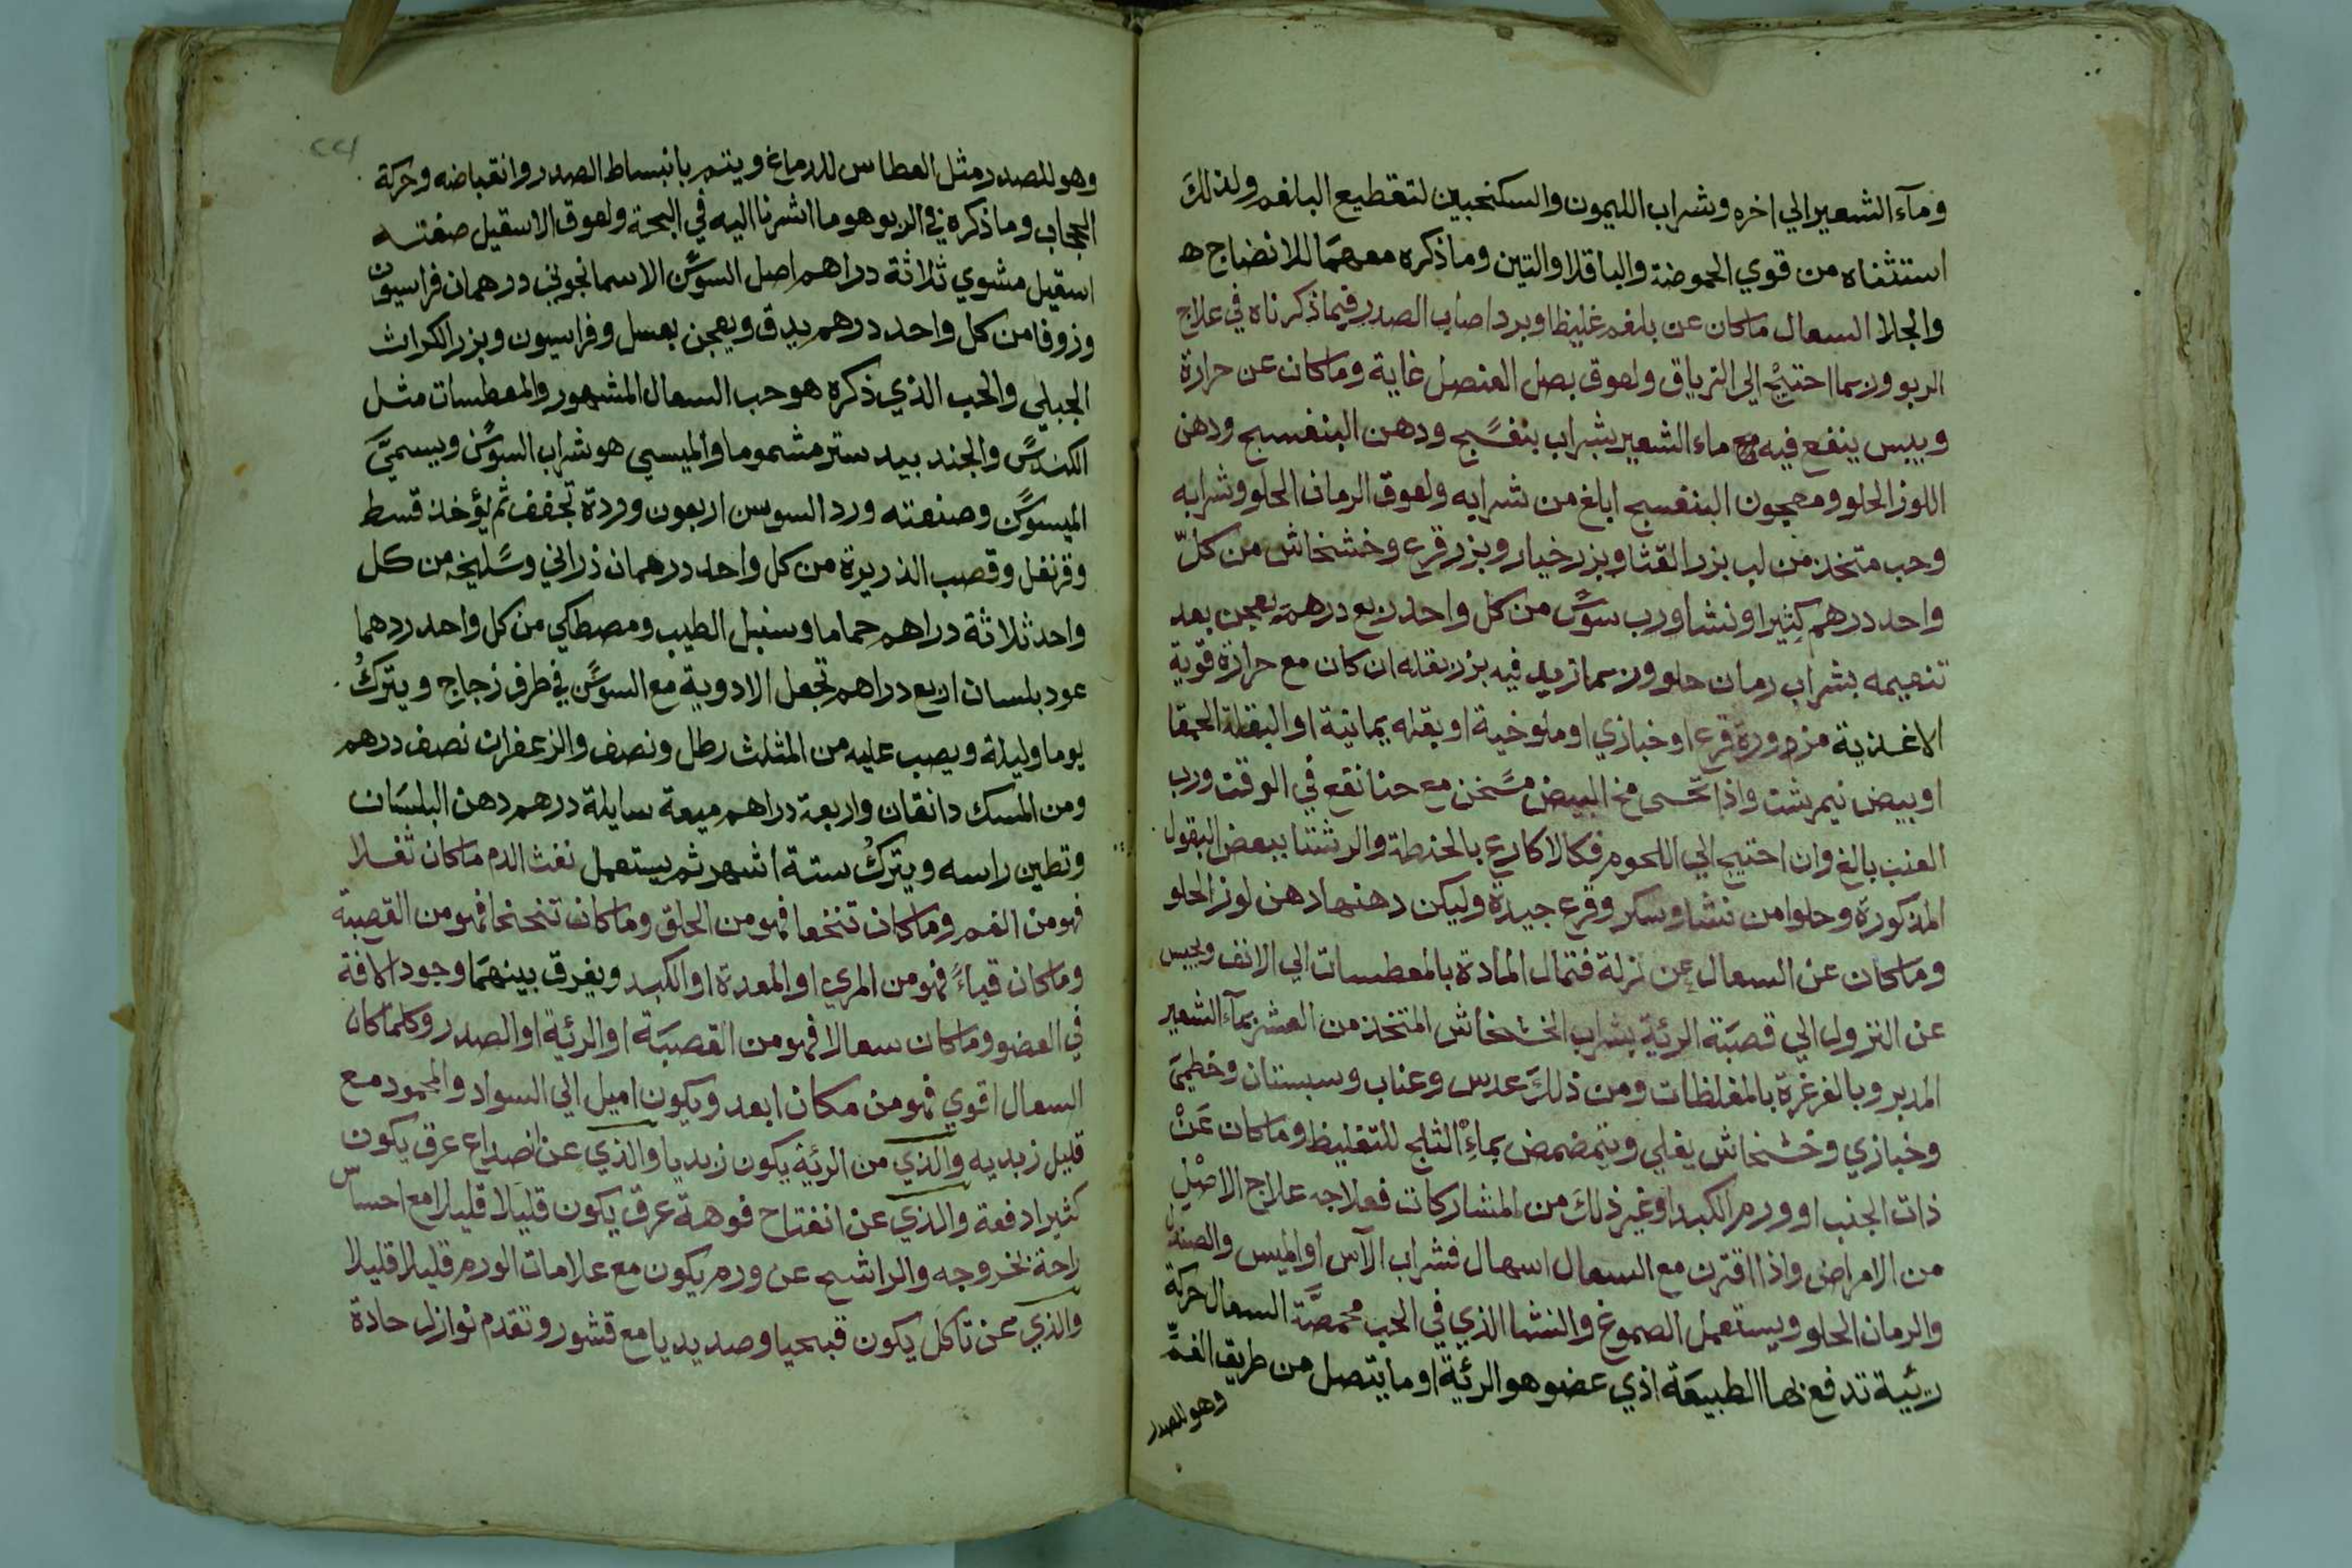 ومآء الشعير الي اخره وشراب الليمون والسكنجبين لتقطيع البلغم ولذلك
استثناه من قوي الحموضة والباقلا والتين وما ذكره معهما للانضاج ه
والجلا السعال ماكان عن بلغم غليظ او برد اصاب الصدر فيما ذكرناه في علاج
الربو وربما احتيج الي الترياق ولعوق بصل العنصل غاية وماكان عن حرارة
ويبس ينفع فيه مع ماء الشعير بشراب بنفسج ودهن البنفسج ودهن
اللوز الحلو ومعجون البنفسج ابلغ من شرابه ولعوق الرمان الحلو وشرابه
وحب متخذ من لب بزر القثا وبزر خيار وبزر قرع وخشخاش من كل
واحد درهم كثيرا ونشا ورب سوس من كل واحد ربع درهم يعجن بعد
تنعيمه بشراب رمان حلو وربما زيد فيه بزر بقله ان كان مع حرارة قوية
الاغذية مزورة قرع او خبازي او ملوخية او بقله يمانية او البقلة الحمقا
او بيض نيمرشت واذا تحسى مخ البيض مسخن مع حنا نقع في الوقت ورب
العنب بالغ وان احتيج الي اللحوم فكالاكارع بالحنطة والرشتا ببعض البقول
المذكورة وحلوا من نشا وسكر وقرع جيدة وليكن دهنها دهن لوز الحلو
وماكان عن السعال عن نزلة فتمال المادة بالمعطسات الي الانف ويحبس
عن النزول الي قصبة الرئية بشراب الخشخاش المتخذ من العشر بمآء الشعير
المدبر وبالغرغرة بالمغلظات ومن ذلك عدس وعناب وسبستان وخطمي
وخبازي وخشخاش يغلي ويتمضمض بماء الثلج للتغليظ وماكان عن
ذات الجنب او ورم الكبد او غير ذلك من المشاركات فعلاجه علاج الاصل
من الامراض واذا اقترن مع السعال اسهال فشراب الآس او الميس والصندل
والرمان الحلو ويستعمل الصموغ والنشا الذي في الحب محمصة السعال حركة
رئية تدفع بها الطبيعة اذي عضو هو الرئية او ما يتصل من طريق الفم
وهو للصدر
٢٢١
وهو للصدر مثل العطاس للدماغ ويتم بانبساط الصدر وانقباضه وحركة
الحجاب وما ذكره في الربو هو ما اشرنا اليه في البحة ولعوق الاسقيل صفته
اسقيل مشوي ثلاثة دراهم اصل السوسن الاسمانجوني درهمان فراسيون
وزوفا من كل واحد درهم يدق ويعجن بعسل وفراسيون وبزر الكراث
الجبلي والحب الذي ذكره هو حب السعال المشهور والمعطسات مثل
الكندس والجند بيد ستر مشموما والميسي هو شراب السوسن ويسمي
الميسوسن وصنعته ورد السوسن اربعون وردة تجفف ثم يؤخذ قسط
وقرنفل وقصب الذريرة من كل واحد درهمان ذراني وسليخه من كل
واحد ثلاثة دراهم حماما وسنبل الطيب ومصطكي من كل واحد ردهما
عود بلسان اربع دراهم تجعل الادوية مع السوسن في ظرف زجاج ويترك
يوما وليلة ويصب عليه من المثلث رطل ونصف والزعفران نصف درهم
ومن المسك دانقان واربعة دراهم ميعة سايلة درهم دهن البلسان
وتطين راسه ويترك ستة اشهر ثم يستعمل نفث الدم ماكان ثفلا
فهو من الفم وماكان تنخعا فهو من الحلق وماكان تنحنحا فهو من القصبة
وماكان قياء فهو من المري او المعدة او الكبد ويفرق بينهما وجود الافة
في العضو وماكان سعالا فهو من القصبة او الرئية او الصدر وكلما كان
السعال اقوي فهو من مكان ابعد ويكون اميل الي السواد والجمود مع
قليل زبديه والذي من الرئية يكون زبديا والذي عن انصداع عرق يكون
كثيرا دفعة والذي عن انفتاح فوهة عرق يكون قليلا قليلا مع احساس
راحة بخروجه والراشح عن ورم يكون مع علامات الورم قليلا قليلا
والذي عن تاكل يكون قيحيا وصديديا مع قشور وتقدم نوازل حادة